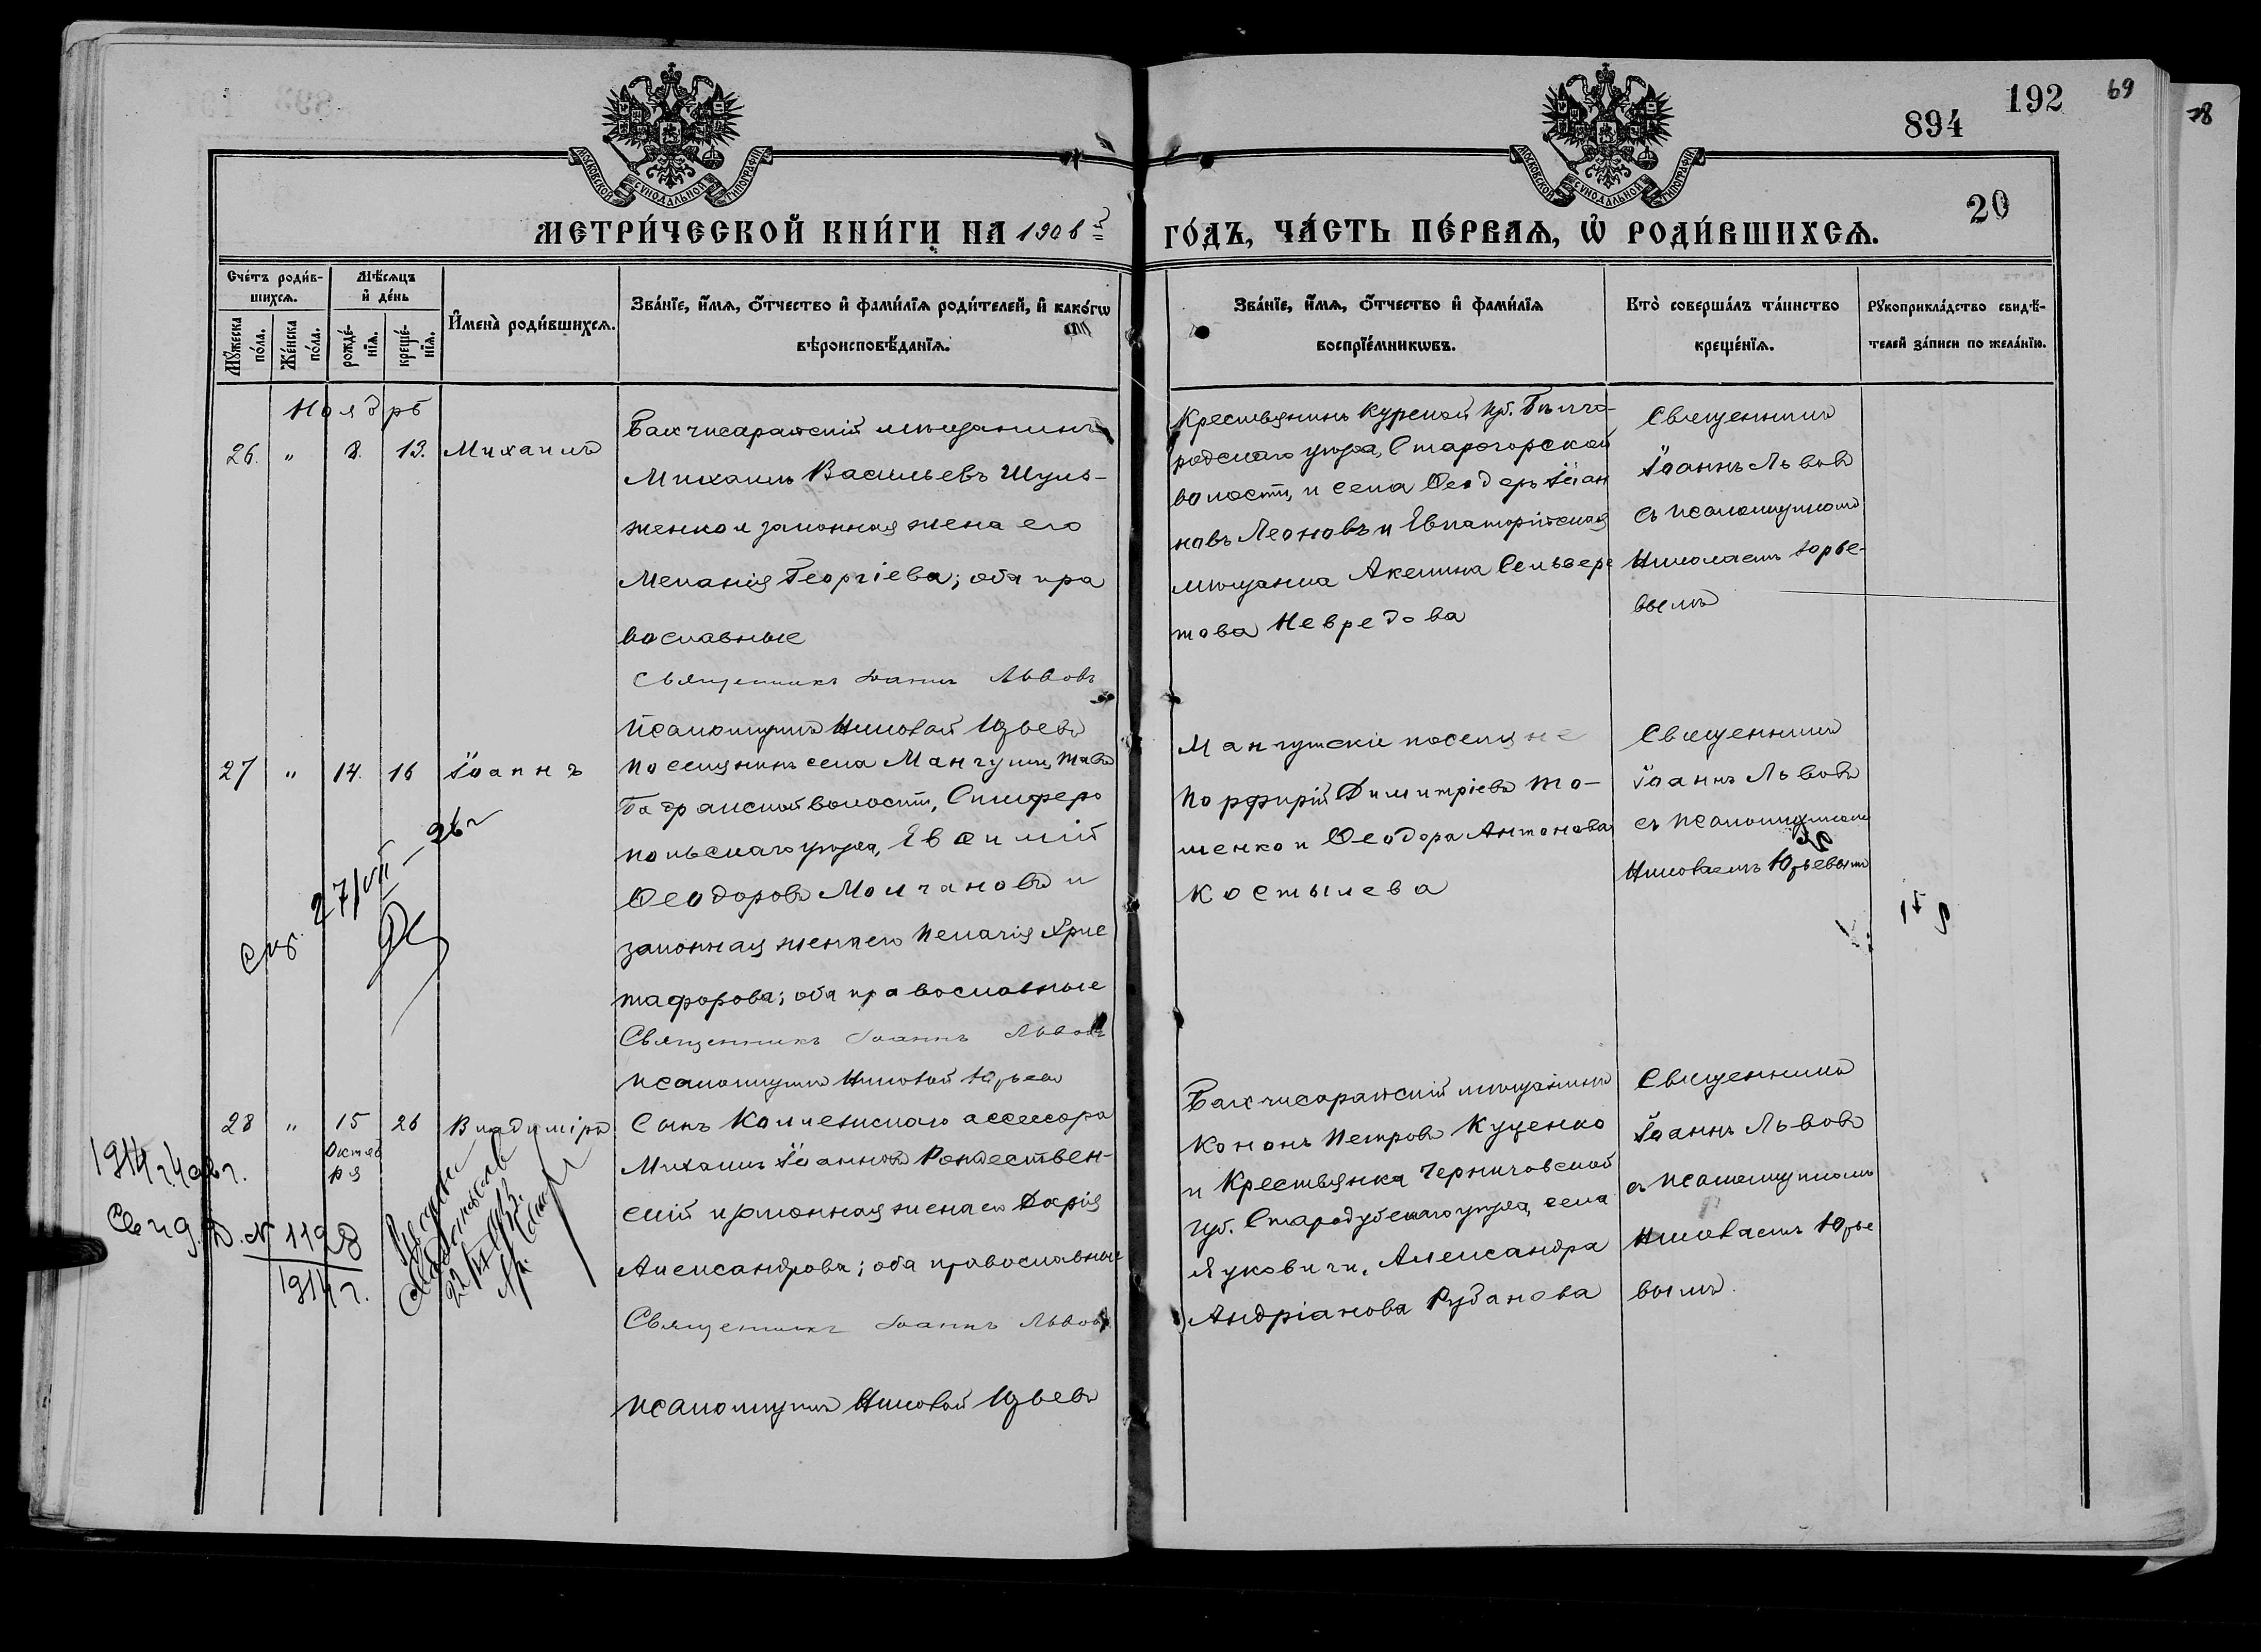 192
69
18
894
20
МОСКОВСКОЙ СѴНОДАЛЬНОЙ ТИПОГРАФІИ
МОСКОВСКОЙ СѴНОДАЛЬНОЙ ТИПОГРАФІИ
МЕТРИ́ЧЕСКОЙ КНИ́ГИ НА 1906 й
ГО́ДЪ, ЧА́СТЬ ПЕ́РВАѦ, Ѡ҆ РОДИ́ВШИХСѦ.
Сче́тъ роди́в-
шихсѧ.
Мꙋ́жеска по́ла.
Же́нска по́ла.
Мѣ́сѧцъ
и҆ де́нь
рожде́-
нїѧ.
креще́-
нїѧ.
И҆мена̀ роди́вшихсѧ.
Зва́нїе, и҆́мѧ, ѻ҆́тчество и҆ фами́лїѧ роди́телей, и҆ како́гѡ
вѣроисповѣ́данїѧ.
Зва́нїе, и҆́мѧ, ѻ҆́тчество и҆ фами́лїѧ
воспрїе́мникѡвъ.
Кто̀ соверша́лъ та́инство
креще́нїѧ.
Рꙋкоприкла́дство свидѣ́-
телей за́писи по жела́нїю.
Ноябрь
26. " 8. 13. Михаилъ
Бахчисарайскій мѣщанинъ
Михаилъ Васильевъ Шуль-
женко и законная жена его
Меланія Георгіева; оба пра
вославные
Священникъ Іоаннъ Львовъ
Псаломщикъ Николай Юрьевъ
Крестьянинъ Курской губ. Бѣлго-
родскаго уѣзда, Старогорской
волости, и села Ѳеодоръ Іоан
новъ Леоновъ и Евпаторійская
мѣщанка Акелина Сельвере
това Невредова
Священникъ
Іоаннъ Львовъ
съ псаломщикомъ
Николаемъ Юрье-
вымъ
27 " 14. 16 Іоаннъ
Поселянинъ села Мангушъ, Тавъ
Бадракской волости, Симферо
польскаго уѣзда, Евѳимій
Ѳеодоровъ Молчановъ и
законная жена его Пелагія Хрис
тофорова; оба православные
Священникъ Іоаннъ Львовъ
псаломщикъ Николай Юрьевъ
Мангушскіе поселяне
Порфирій Димитріевъ То-
менко и Ѳеодора Антонова
Костылева
Священникъ
Іоаннъ Львовъ
съ псаломщикомъ
Николаемъ Юрьевымъ
27/VII–26г
28 " 15 26 Владиміръ
Октяб
ря
Сынъ Коллежскаго ассесора
Михаилъ Іоанновъ Рождествен-
скій и законная жена его Дарія
Александрова; оба православные
Священникъ Іоаннъ Львовъ
псаломщикъ Николай Юрьевъ
Бахчисарайскій мѣщанинъ
Кононъ Петровъ Куценко
и Крестьянка Черниговской
губ. Стародубскаго уѣзда, села
Луковичи, Александра
Андріанова Рубанова
Священникъ
Іоаннъ Львовъ
съ псаломщикомъ
Николаемъ Юрье
вымъ.
1914 г. 4 авг.
№ 1198
1914 г.